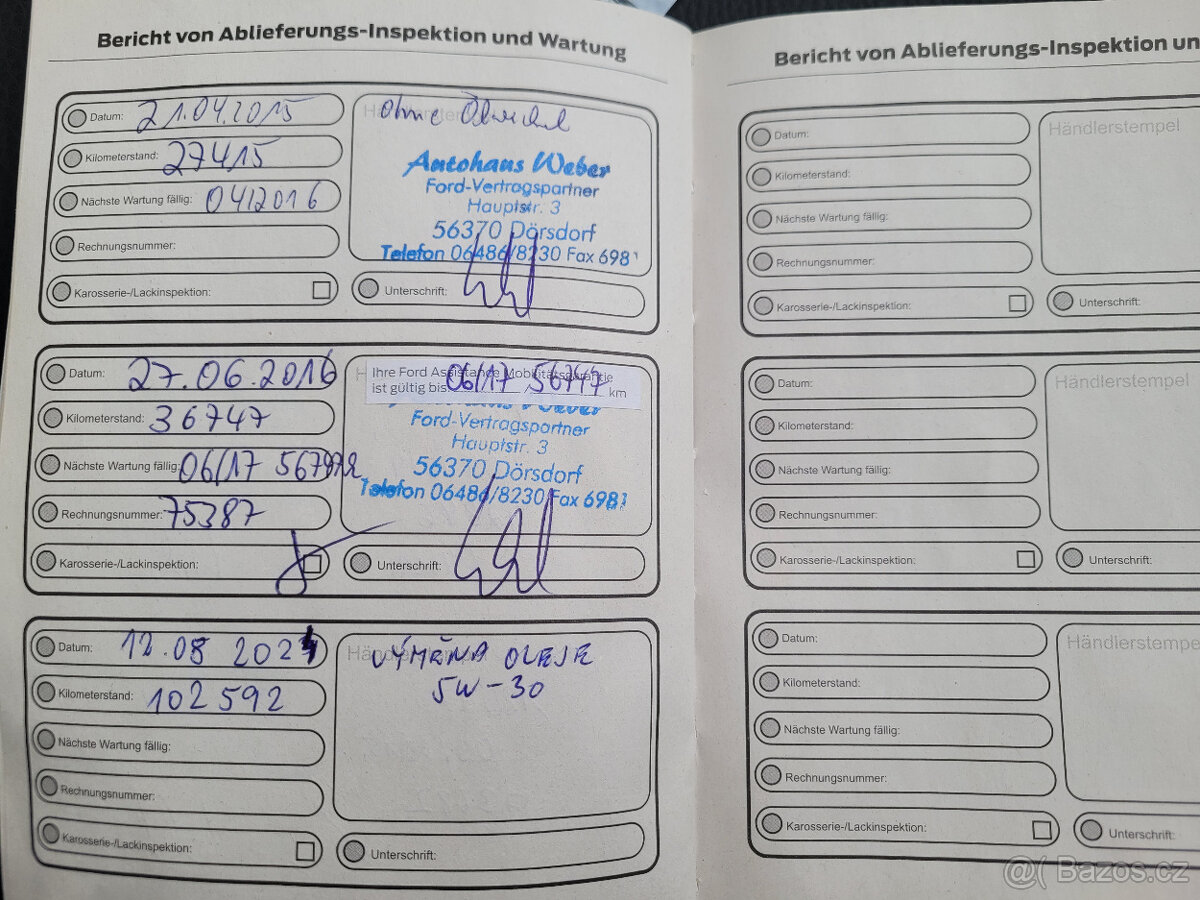 Bericht von Ablieferungs-Inspektion und Wartung
Datum: 21.04.2015
Kilometerstand: 27415
Nächste Wartung fällig: 04/2016
Rechnungsnummer:
Karosserie-/Lackinspektion:
Ohne Ölwechsel
Autohaus Weber
Ford-Vertragspartner
Hauptstr. 3
56370 Dörsdorf
Telefon 06486/8230 Fax 6981
Unterschrift:
Datum: 27.06.2016
Kilometerstand: 36747
Nächste Wartung fällig: 06/17
Rechnungsnummer: 75387
Karosserie-/Lackinspektion:
Ihre Ford Assistance Mobilitätsgarantie
ist gültig bis 06/17 56747 km
Ford-Vertragspartner
Hauptstr. 3
56370 Dörsdorf
Telefon 06486/8230 Fax 6981
Unterschrift:
Datum: 12.08 2021
Kilometerstand: 102 592
Nächste Wartung fällig:
Rechnungsnummer:
Karosserie-/Lackinspektion:
VÝMĚNA OLEJE
5W-30
Unterschrift:
Bericht von Ablieferungs-Inspektion un
Datum:
Kilometerstand:
Nächste Wartung fällig:
Rechnungsnummer:
Karosserie-/Lackinspektion:
Händlerstempel
Unterschrift:
Datum:
Kilometerstand:
Nächste Wartung fällig:
Rechnungsnummer:
Karosserie-/Lackinspektion:
Händlerstempel
Unterschrift:
Datum:
Kilometerstand:
Nächste Wartung fällig:
Rechnungsnummer:
Karosserie-/Lackinspektion:
Händlerstempe
Unterschrift:
@( Bazos.cz